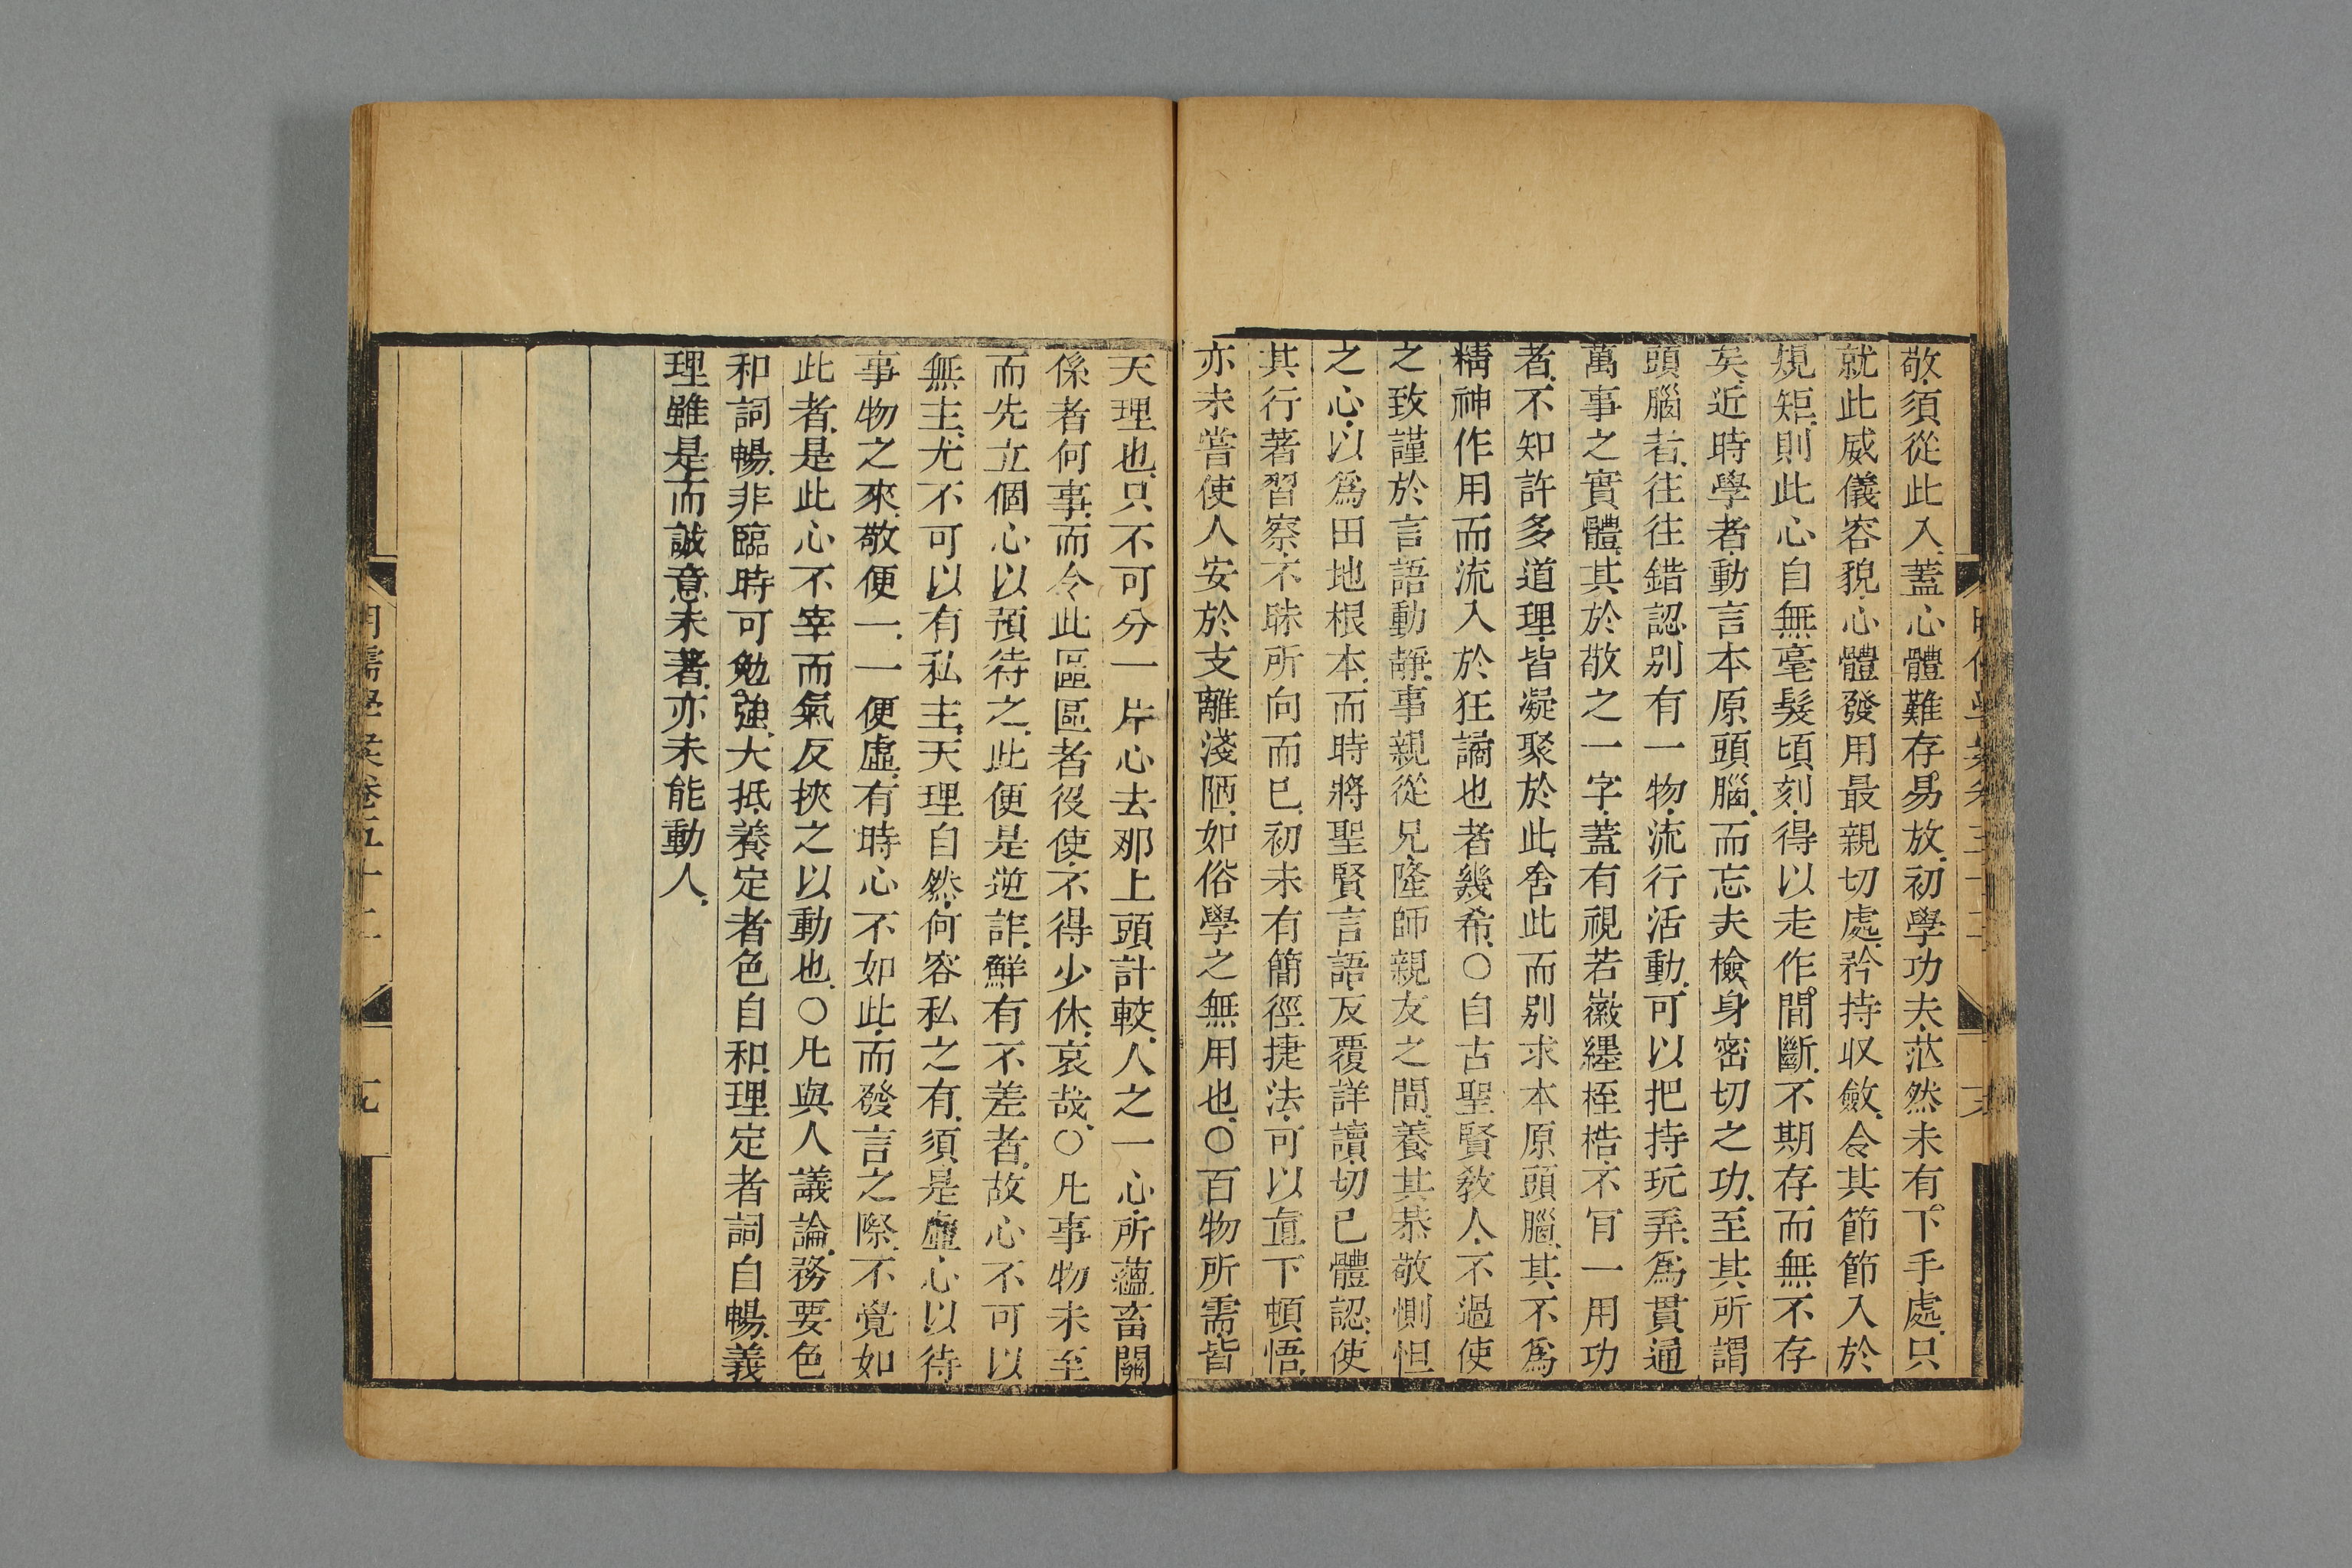 敬.須從此入.蓋心體難存.易放.初學功夫.茫然未有下手處.只
就此威儀容貌.心體發用最親切處.矜持収斂.令其節節入於
規矩.則此心自無毫髮頃刻.得以走作間斷.不期存而無不存
矣.近時學者.動言本原頭腦.而忘夫檢身密切之功.至其所謂
頭腦者.往往錯認別有一物.流行活動.可以把持玩弄.爲貫通
萬事之實體.其於敬之一字.蓋有視若徽纆桎梏.不肎一用功
者.不知許多道理.皆凝聚於此.舍此而別求本原頭腦.其不爲
精神作用而流入於狂譎也者幾希.○自古聖賢教人.不過使
之致謹於言語動靜.事親從兄.隆師親友之間.養其恭敬惻怛
之心.以爲田地根本.而時將聖賢言語.反覆詳讀.切已體認.使
其行著習察.不昧所向而已.初未有簡徑捷法.可以直下頓悟.
亦未嘗使人安於支離淺陋.如俗學之無用也.○百物所需.皆
天理也.只不可分一片心去那上頭計較.人之一心.所蘊畜關
係者何事.而令此區區者役使.不得少休.哀哉.○凡事物未至
而先立個心以預待之.此便是逆詐.鮮有不差者.故心不可以
無主.尤不可以有私主.天理自然.何容私之有.須是虛心以待
事物之來.敬便一.一便虛.有時心不如此.而發言之際.不覺如
此者.是此心不宰而氣反挾之以動也.○凡與人議論.務要色
和詞暢.非臨時可勉強.大抵養定者色自和.理定者詞自暢.義
理雖是.而誠意未著.亦未能動人.
明儒學案卷五十二